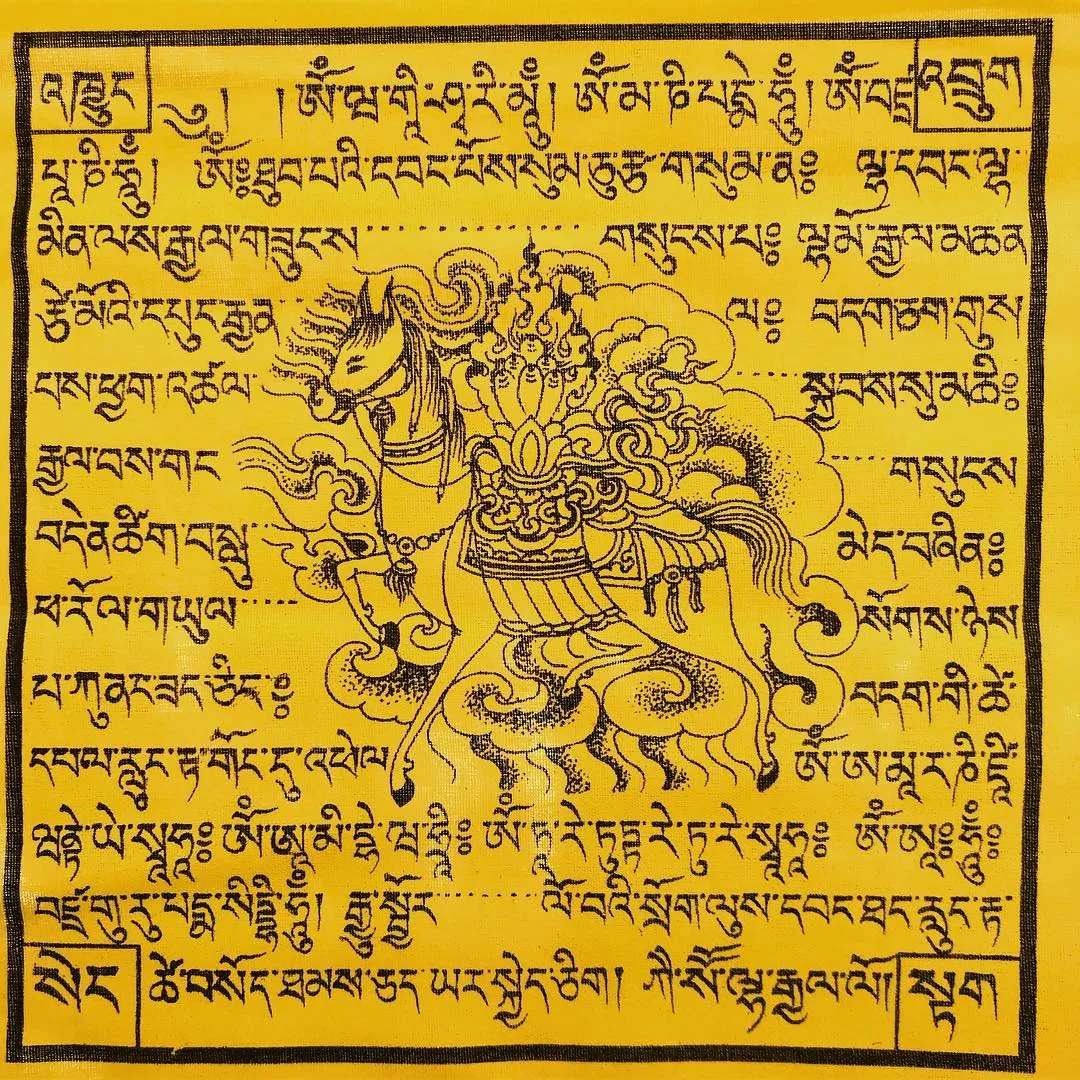 འ་ཁྱུང ༄། །ཨོཾ་ཝ་གཱི་ཤྭ་རི་མཱུྃ། ཨོཾ་མ་ཎི་པདྨེ་ཧཱུྃ། ཨོཾ་བཛྲ འབྲུག
པཱ་ཎི་ཧཱུྃ། ཨོཾ༔ཐུབ་པའི་དབང་པོས་སུམ་ཅུ་རྩ་གསུམ་ན༔ ལྷ་དབང་ལྷ་
མིན་ལས་རྒྱལ་གཟུངས་ གསུངས་པ༔ ལྷ་མོ་རྒྱལ་མཚན
རྩེ་མོའི་དཔུང་རྒྱན ལ༔ བདག་ཅག་གུས
པས་ཕྱག་འཚལ སྐྱབས་སུ་མཆི༔
རྒྱལ་བས་གང གསུངས
བདེན་ཚིག་བསླུ མེད་བཞིན༔
ཕ་རོལ་གཡུལ སོགས་ཉེས
པ་ཀུན་ར་ཟང་ཅིང་༔ བདག་གི་ཚེ་
དཔལ་རླུང་རྟ་གོང་དུ་འཕེལ ཨོཾ་ཨ་མཱ་ར་ཎི་ཛཱི
ཝནྟེ་ཡེ་སྭཱཧཱ༔ ཨོཾ་ཨ་མི་དྷེ་ཝ་ཧྲཱི༔ ཨོཾ་ཏཱ་རེ་ཏུཏྟ་རེ་ཏུ་རེ་སྭཱཧཱ༔ ཨོཾ་ཨཱཿཧཱུྃ༔
བཛྲ་གུ་རུ་པདྨ་སིདྡྷི་ཧཱུྃ། རྒྱུ་སྦྱོར ལོ་བའི་སྲོག་ལུས་དབང་ཐང་རླུང་རྟ་
སེང ཚེ་བསོད་ཐམས་ཅད་ཡར་སྐྱེད་ཅིག། ཀི་སོ་ལྷ་རྒྱལ་ལོ། སྟག